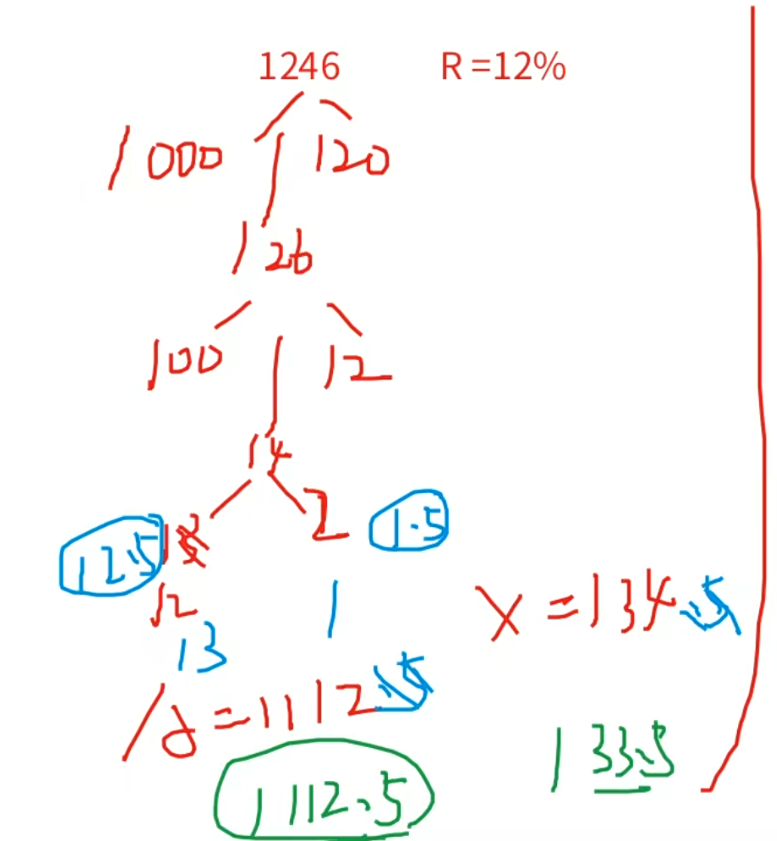 1246 R=12%
1000 120
126
100 12
14
12.5 2 1.5
12 1
13 X=134.5
=1112.5
1112.5 133.5